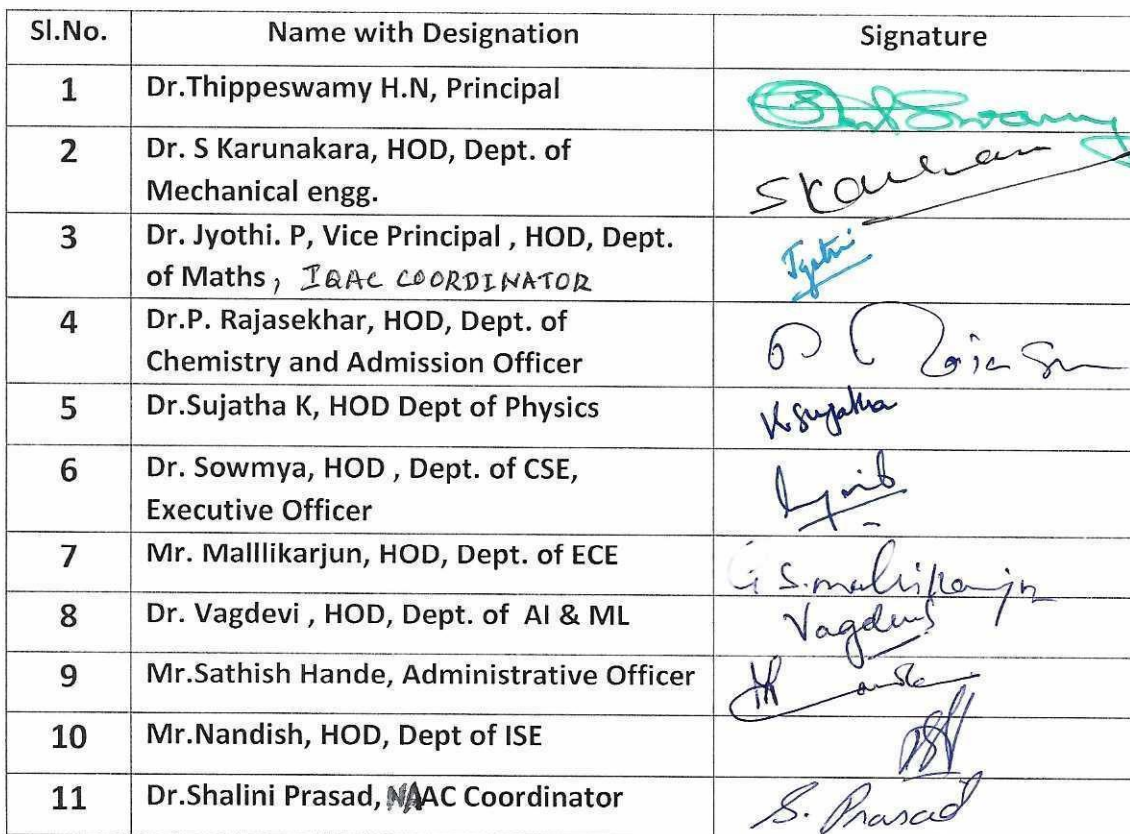 Sl.No. Name with Designation Signature
1 Dr.Thippeswamy H.N, Principal
2 Dr. S Karunakara, HOD, Dept. of
Mechanical engg.
3 Dr. Jyothi. P, Vice Principal , HOD, Dept. Jyothi
of Maths, IQAC COORDINATOR
4 Dr.P. Rajasekhar, HOD, Dept. of
Chemistry and Admission Officer
5 Dr.Sujatha K, HOD Dept of Physics K.Sujatha
6 Dr. Sowmya, HOD , Dept. of CSE,
Executive Officer
7 Mr. Malllikarjun, HOD, Dept. of ECE
8 Dr. Vagdevi , HOD, Dept. of AI & ML Vagdevi
9 Mr.Sathish Hande, Administrative Officer
10 Mr.Nandish, HOD, Dept of ISE
11 Dr.Shalini Prasad, NAAC Coordinator S. Prasad